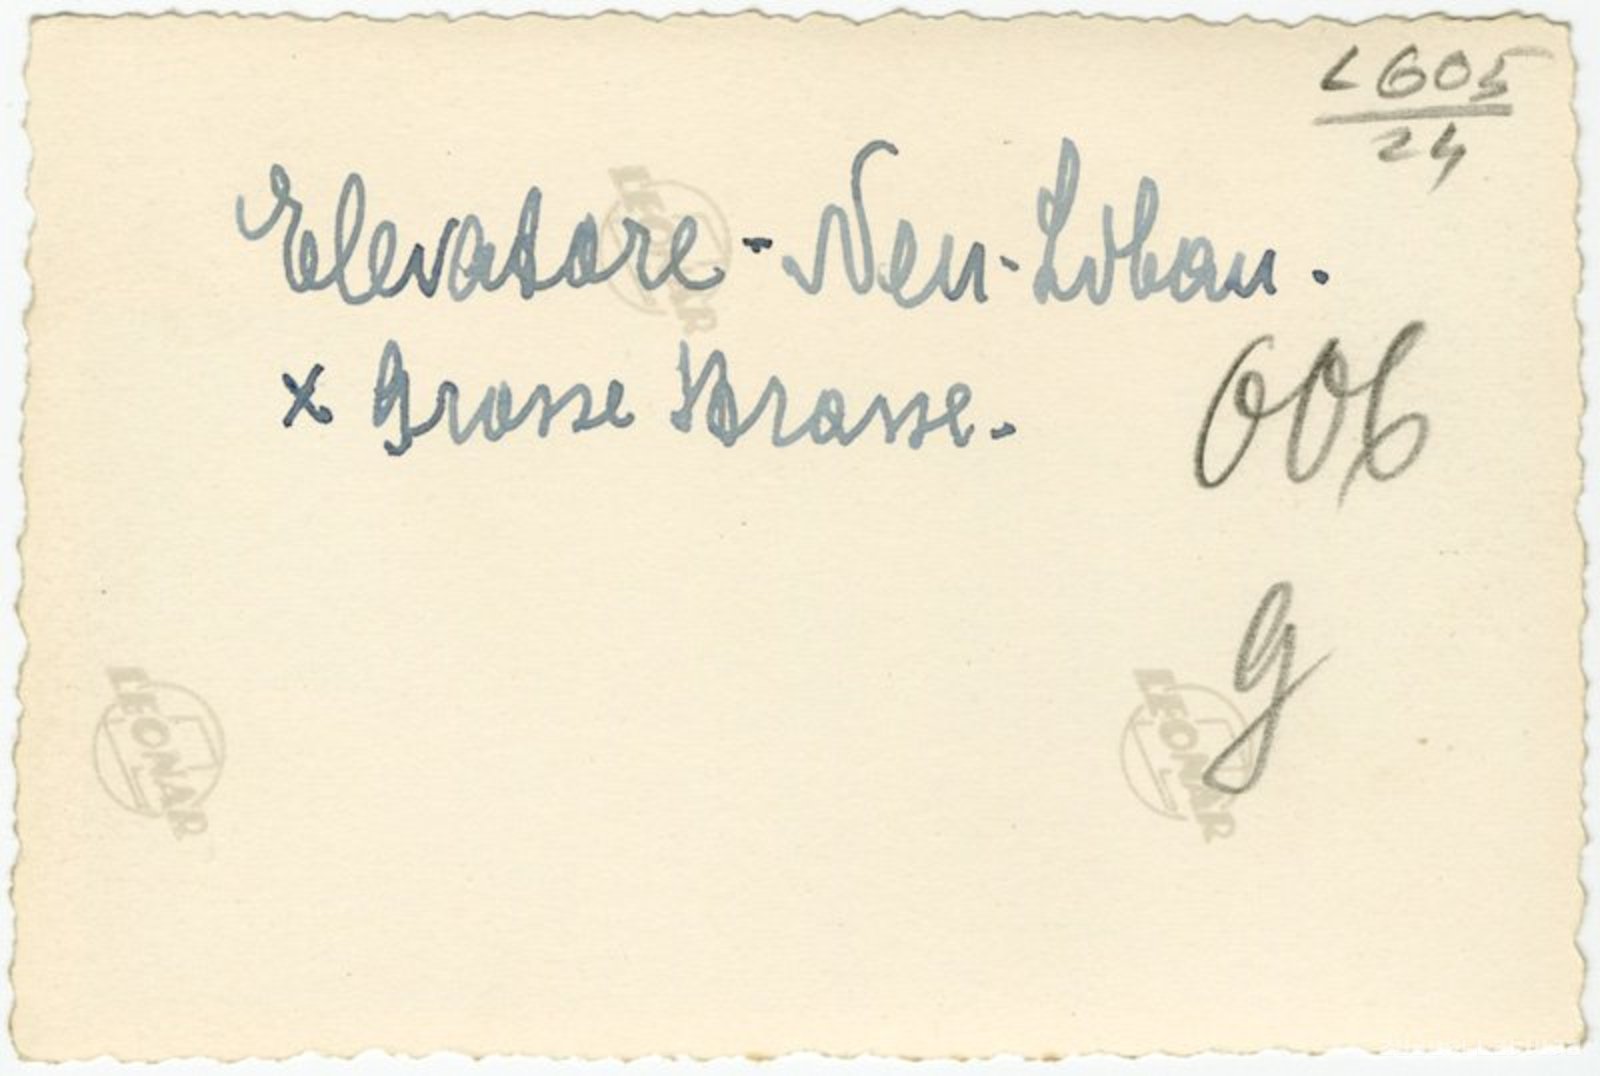 L 605
24
Elevatore - Neu-Liban.
x Grosse Strasse.
006
g
LEONAR
LEONAR
LEONAR